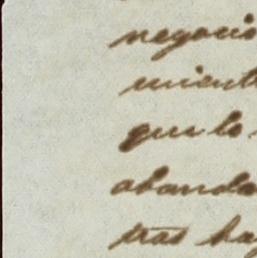 negocio
mient
que lo
abando
tras hay